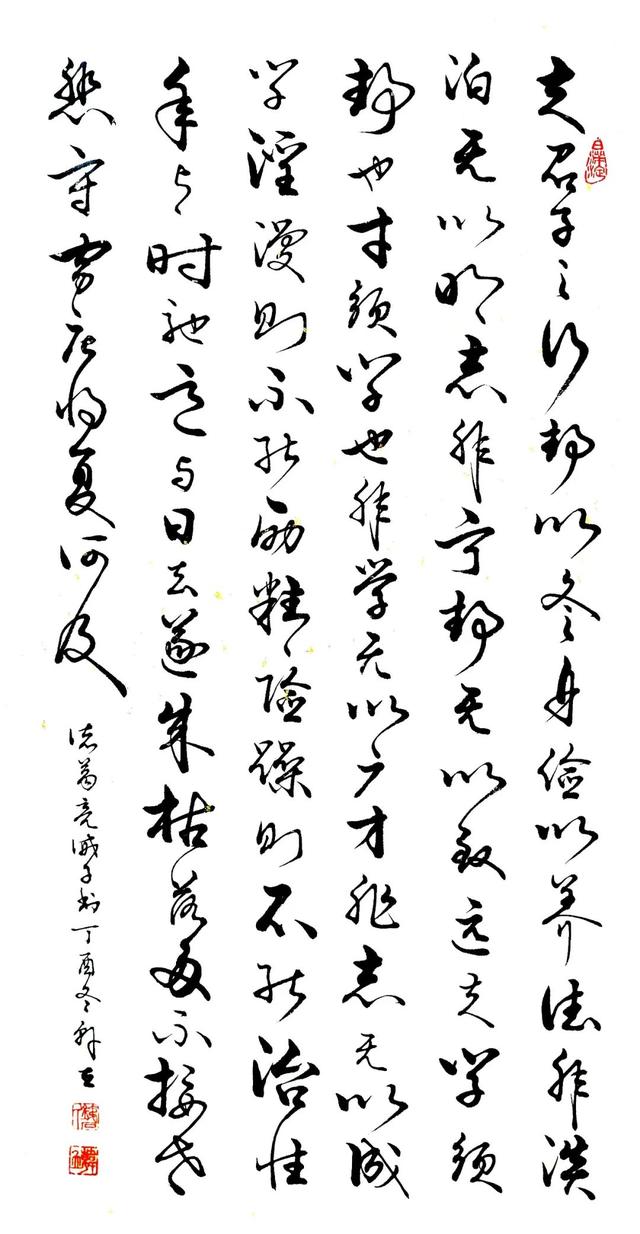 夫君子之行静以修身俭以养德非淡
泊无以明志非宁静无以致远夫学须
静也才须学也非学无以广才非志无以成
学淫漫则不能励精险躁则不能治性
年与时驰意与日去遂成枯落多不接世
悲守穷庐将复何及
诸葛亮诫子书丁酉冬